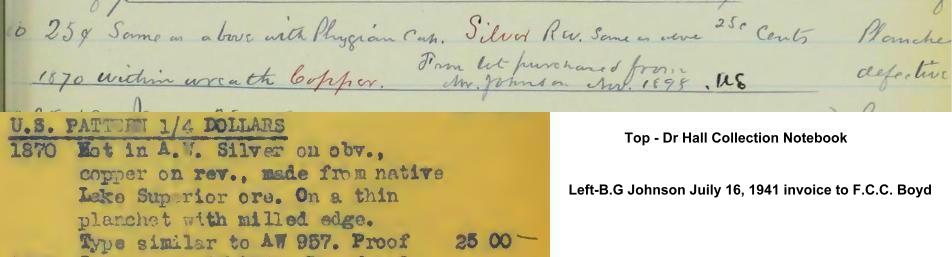 10 25¢ Same as above with Phygian Cap. Silver Rev. Same as above 25c Cents Planchet
1870 within wreath Copper. From lot purchased from Mr. Johnson Nov. 1898 . defective
U.S. PATTERN 1/4 DOLLARS
1870 Not in A.W. Silver on obv.,
copper on rev., made from native
Lake Superior ore. On a thin
planchet with milled edge.
Type similar to AW 957. Proof 25 00
Top - Dr Hall Collection Notebook
Left-B.G Johnson Juily 16, 1941 invoice to F.C.C. Boyd